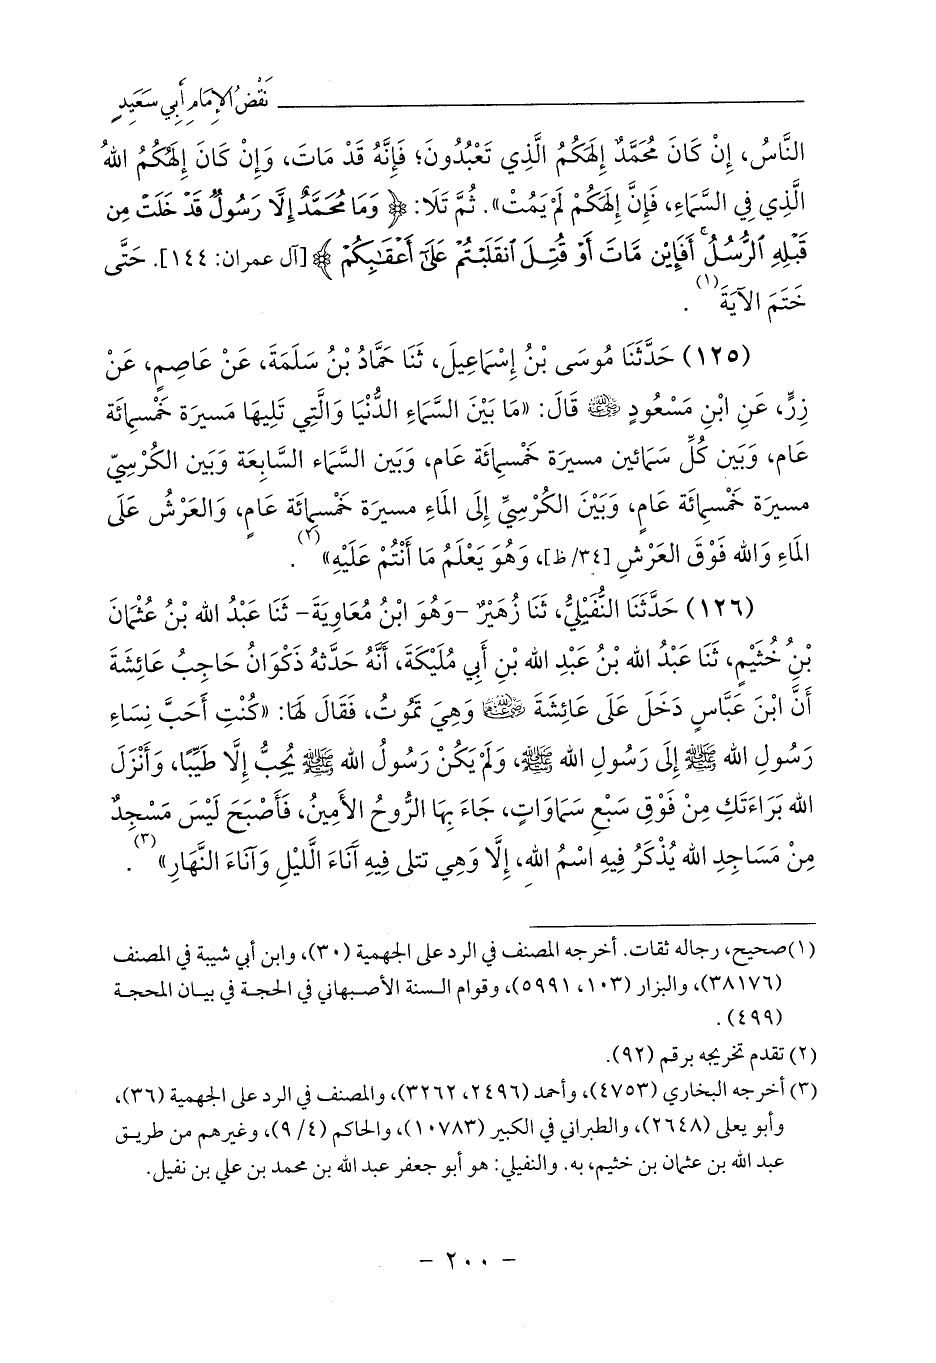 نَقْضُ الإِمَامِ أَبِي سَعَيدٍ
النَّاسُ، إِنْ كَانَ مُحَمَّدٌ إِلَهَكُمُ الَّذِي تَعْبُدُونَ؛ فَإِنَّهُ قَدْ مَاتَ، وَإِنْ كَانَ إِلَهُكُمُ اللهُ
الَّذِي فِي السَّمَاءِ، فَإِنَّ إِلَهَكُمْ لَمْ يَمُتْ». ثُمَّ تَلَا: ﴿وَمَا مُحَمَّدٌ إِلَّا رَسُولٌ قَدْ خَلَتْ مِن
قَبْلِهِ ٱلرُّسُلُ ۚ أَفَإِيْن مَّاتَ أَوْ قُتِلَ ٱنقَلَبْتُمْ عَلَىٰٓ أَعْقَٰبِكُمْ﴾ [آل عمران: ١٤٤]. حَتَّى
خَتَمَ الآيَةَ(١).
(١٢٥) حَدَّثَنَا مُوسَى بْنُ إِسْمَاعِيلَ، ثَنَا حَمَّادُ بْنُ سَلَمَةَ، عَنْ عَاصِمٍ، عَنْ
زِرٍّ، عَنِ ابْنِ مَسْعُودٍ رضي الله عنه قَالَ: «مَا بَيْنَ السَّمَاءِ الدُّنْيَا وَالَّتِي تَلِيهَا مَسيرَة خَمْسِمِائَة
عَام، وَبَيْن كُلِّ سَمَائين مسيرَة خَمْسِمِائَة عَام، وَبَين السَّمَاء السَّابِعَة وَبَين الكُرْسِيّ
مسيرَة خَمْسِمِائَة عَامٍ، وَبَيْنَ الكُرْسِيِّ إِلَى المَاءِ مسيرَة خَمْسِمِائَة عَامٍ، وَالعَرْشُ عَلَى
المَاءِ وَالله فَوْقَ العَرْشِ [٣٤/ ظ]، وَهُوَ يَعْلَمُ مَا أَنْتُمْ عَلَيْهِ»(٢).
(١٢٦) حَدَّثَنَا النُّفَيْلِيُّ، ثَنَا زُهَيْرٌ -وَهُوَ ابْنُ مُعَاوِيَةَ- ثَنَا عَبْدُ الله بْنُ عُثْمَانَ
بْنِ خُثَيْمٍ، ثَنَا عَبْدُ الله بْنُ عَبْدِ الله بْنِ أَبِي مُلَيْكَةَ، أَنَّهُ حَدَّثَهُ ذَكْوَانُ حَاجِبُ عَائِشَةَ
أَنَّ ابْنَ عَبَّاسٍ دَخَلَ عَلَى عَائِشَةَ رضي الله عنها وَهِيَ تَمُوتُ، فَقَالَ لَهَا: «كُنْتِ أَحَبَّ نِسَاءِ
رَسُولِ الله ﷺ إِلَى رَسُولِ الله ﷺ، وَلَمْ يَكُنْ رَسُولُ الله ﷺ يُحِبُّ إِلَّا طَيِّبًا، وَأَنْزَلَ
الله بَرَاءَتَكِ مِنْ فَوْقِ سَبْعِ سَمَاوَاتٍ، جَاءَ بِهَا الرُّوحُ الأَمِينُ، فَأَصْبَحَ لَيْسَ مَسْجِدٌ
مِنْ مَسَاجِدِ الله يُذْكَرُ فِيهِ اسْمُ اللهِ، إِلَّا وَهِي تتلى فِيهِ آنَاءَ الَّليْلِ وَآنَاءَ النَّهَارِ»(٣).
(١) صحيح، رجاله ثقات. أخرجه المصنف في الرد على الجهمية (٣٠)، وابن أبي شيبة في المصنف
(٣٨١٧٦)، والبزار (١٠٣، ٥٩٩١)، وقوام السنة الأصبهاني في الحجة في بيان المحجة
(٤٩٩).
(٢) تقدم تخريجه برقم (٩٢).
(٣) أخرجه البخاري (٤٧٥٣)، وأحمد (٢٤٩٦، ٣٢٦٢)، والمصنف في الرد على الجهمية (٣٦)،
وأبو يعلى (٢٦٤٨)، والطبراني في الكبير (١٠٧٨٣)، والحاكم (٤/ ٩)، وغيرهم من طريق
عبد الله بن عثمان بن خثيم، به. والنفيلي: هو أبو جعفر عبد الله بن محمد بن علي بن نفيل.
- ٢٠٠ -